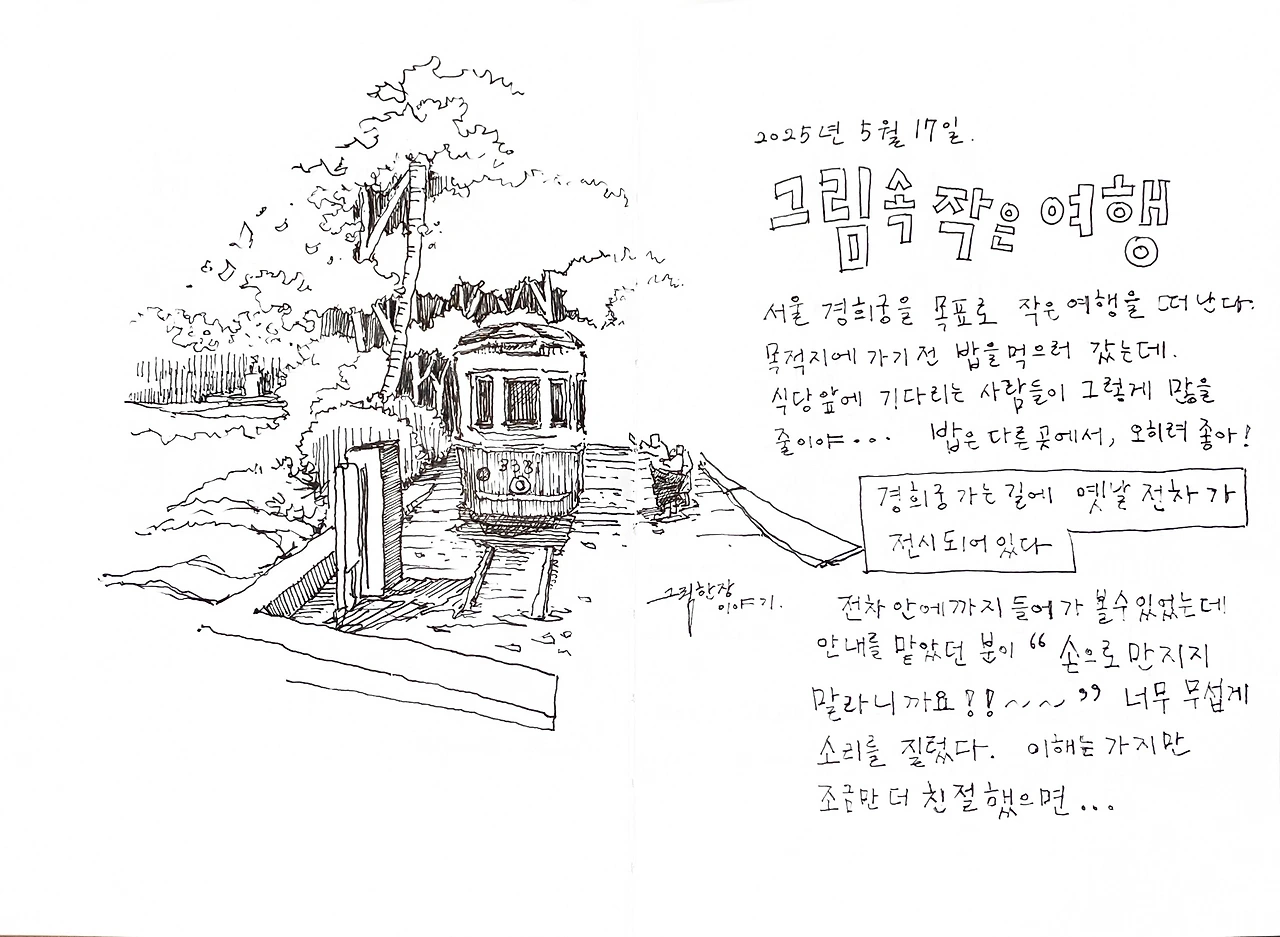 2025년 5월 17일.
그림속 작은 여행
서울 경희궁을 목표로 작은여행을 떠난다.
목적지에 가기전 밥을먹으러 갔는데.
식당앞에 기다리는 사람들이 그렇게 많을
줄이야... 밥은 다른곳에서, 오히려 좋아!
경희궁 가는 길에 옛날 전차가
전시되어 있다
그림한장
이야기.
전차 안에까지 들어가 볼수있었는데!
안내를 맡았던 분이 “ 손으로 만지지
말라니까요!!~~~” 너무 무섭게
소리를 질렀다. 이해는 가지만
조금만 더 친절했으면...